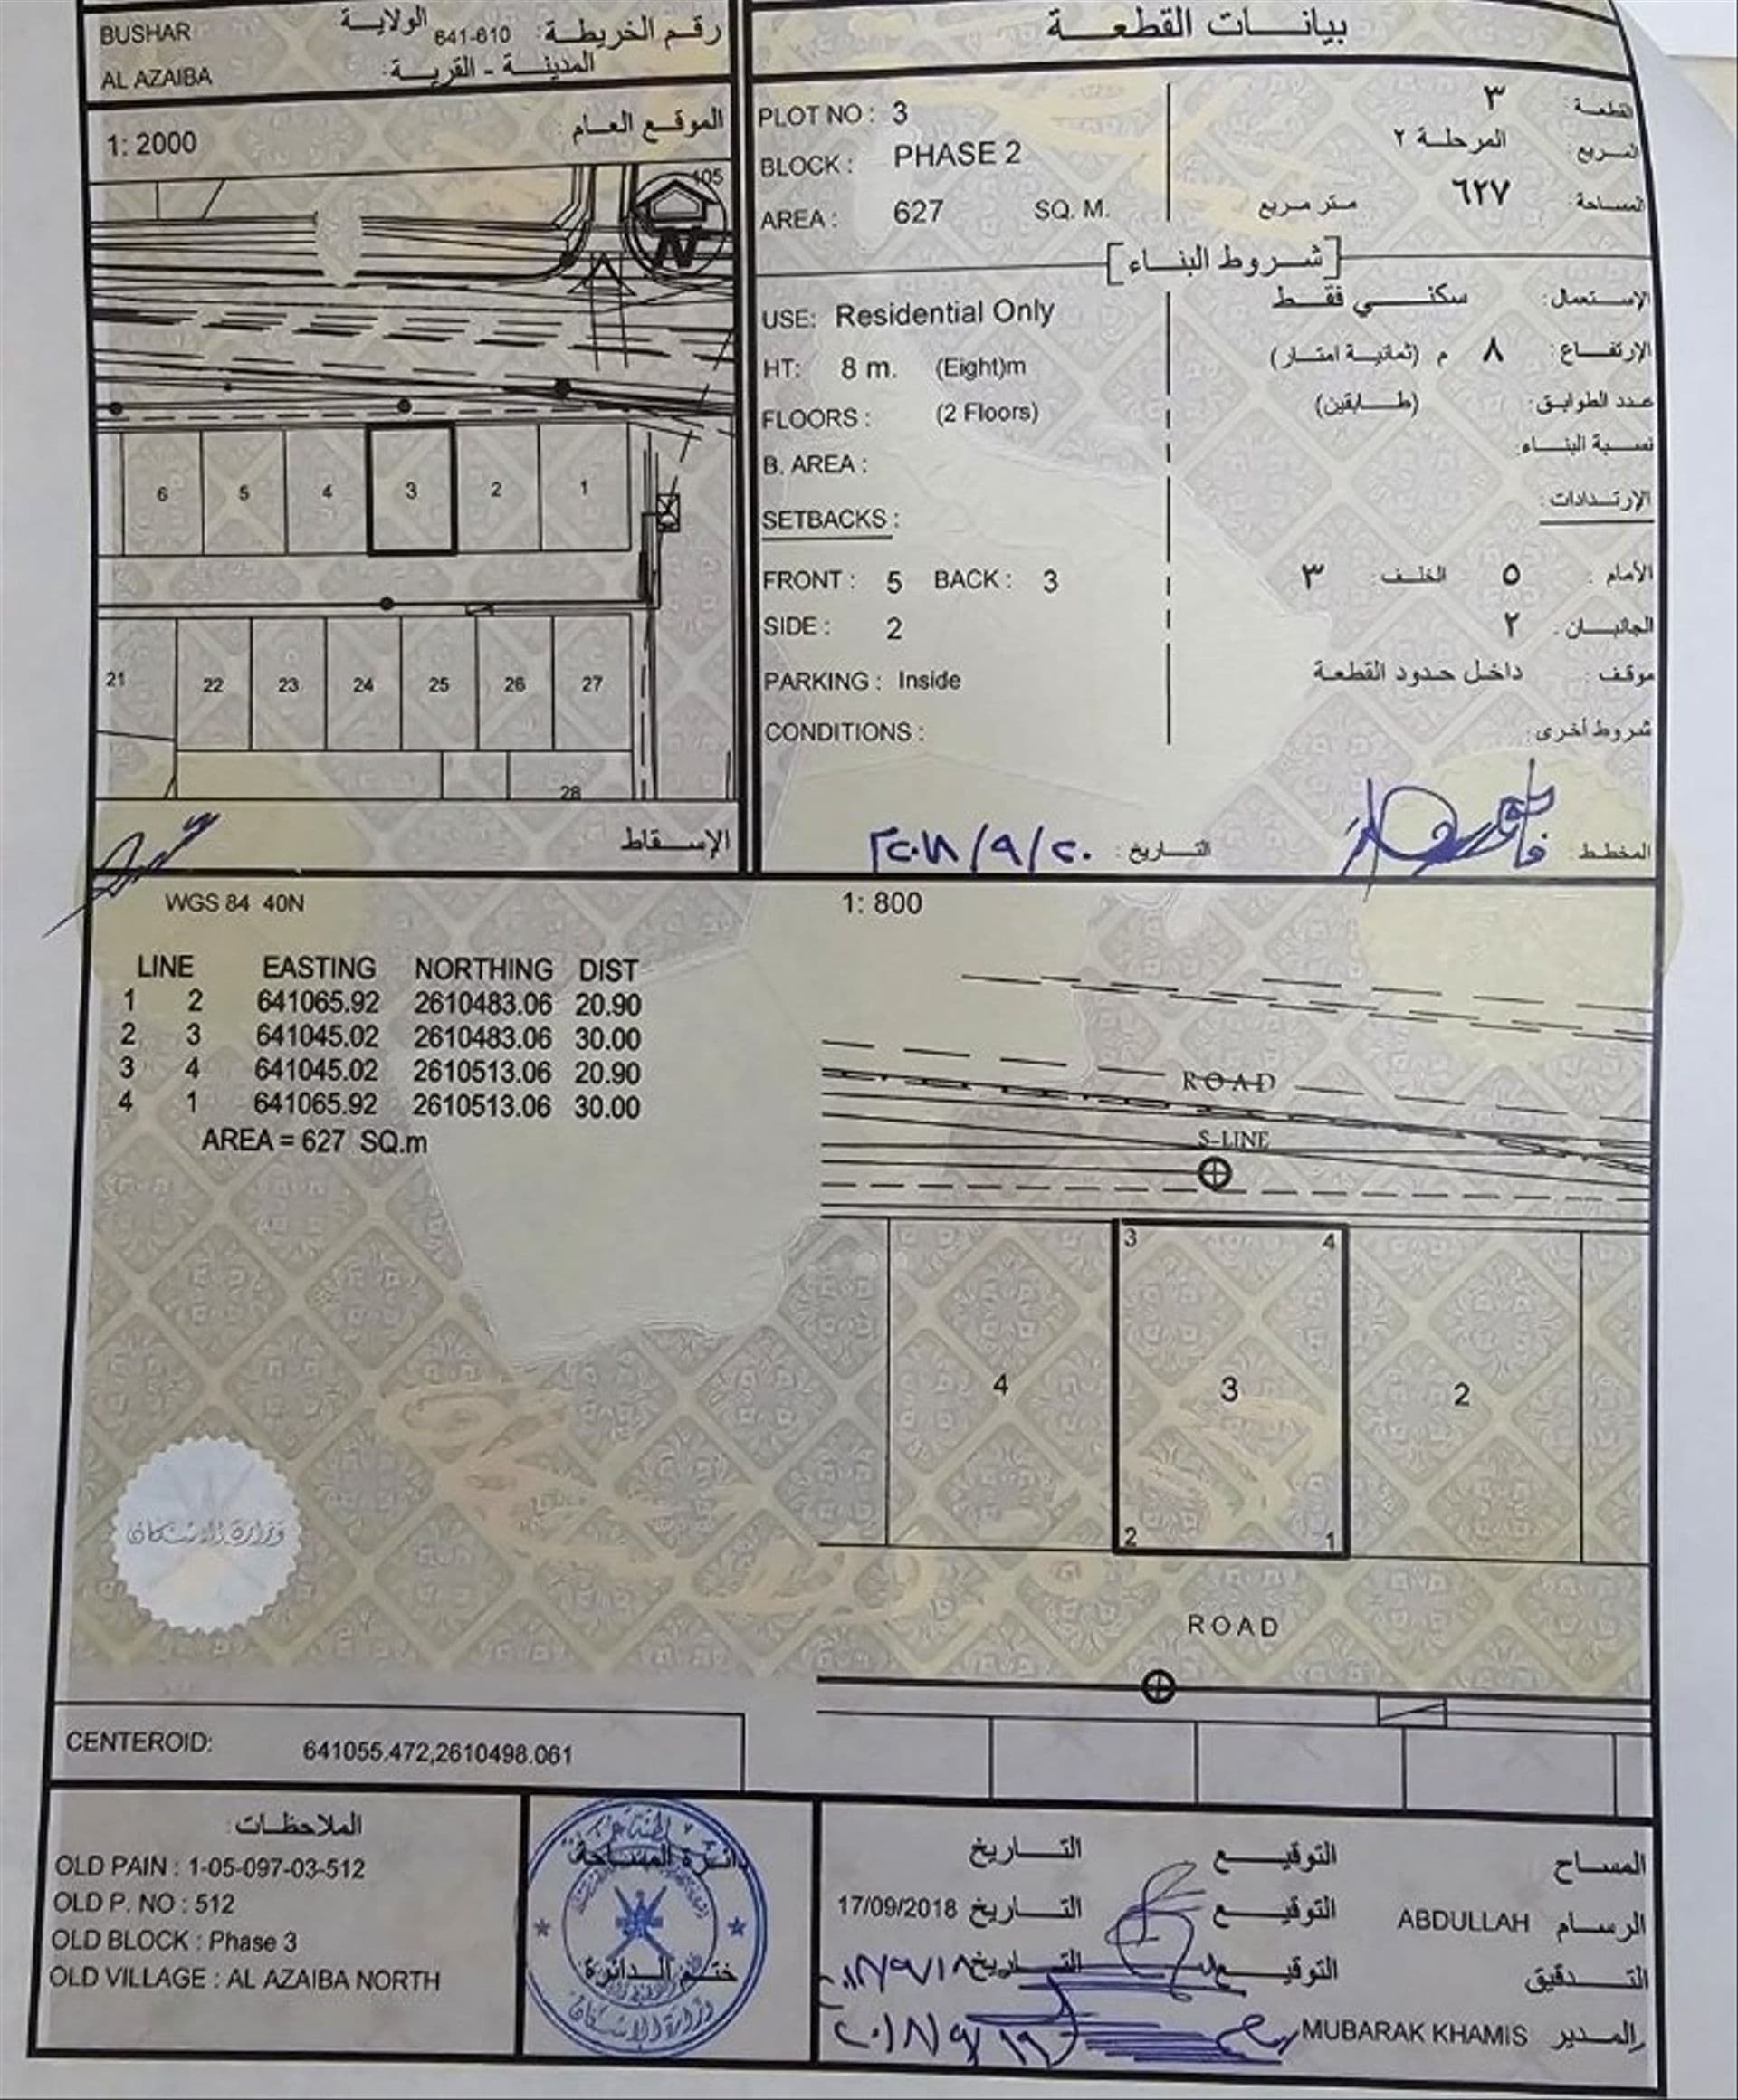 BUSHAR
الولاية
رقم الخريطة: 641-610
AL AZAIBA
المدينة - القرية:
1: 2000
الموقع العام:
105
N
6 5 4 3 2 1
21 22 23 24 25 26 27
28
الإسقاط
بيانات القطعة
PLOT NO : 3
القطعة: ٣
BLOCK : PHASE 2
المربع: المرحلة ٢
AREA : 627 SQ. M.
المساحة: ٦٢٧ متر مربع
[شروط البناء]
USE: Residential Only
الإستعمال: سكني فقط
HT: 8 m. (Eight)m
الإرتفاع: ٨ م (ثمانية امتار)
FLOORS : (2 Floors)
عدد الطوابق: (طابقين)
B. AREA :
نسبة البناء:
SETBACKS :
الإرتدادات:
FRONT : 5 BACK : 3
الأمام: ٥ الخلف: ٣
SIDE : 2
الجانبان: ٢
PARKING : Inside
موقف: داخل حدود القطعة
CONDITIONS :
شروط أخرى:
المخطط:
التاريخ: ٢٠١٨/٩/٢٠
WGS 84 40N
1: 800
LINE EASTING NORTHING DIST
1 2 641065.92 2610483.06 20.90
2 3 641045.02 2610483.06 30.00
3 4 641045.02 2610513.06 20.90
4 1 641065.92 2610513.06 30.00
AREA = 627 SQ.m
ROAD
S-LINE
3 4
4 3 2
2 1
ROAD
وزارة الاسكان
CENTEROID: 641055.472,2610498.061
الملاحظات:
OLD PAIN : 1-05-097-03-512
OLD P. NO : 512
OLD BLOCK : Phase 3
OLD VILLAGE : AL AZAIBA NORTH
دائرة المساحة
ختم الدائرة
وزارة الاسكان
المساح التوقيع التاريخ
الرسام ABDULLAH التوقيع التاريخ 17/09/2018
التدقيق التوقيع التاريخ
المدير MUBARAK KHAMIS